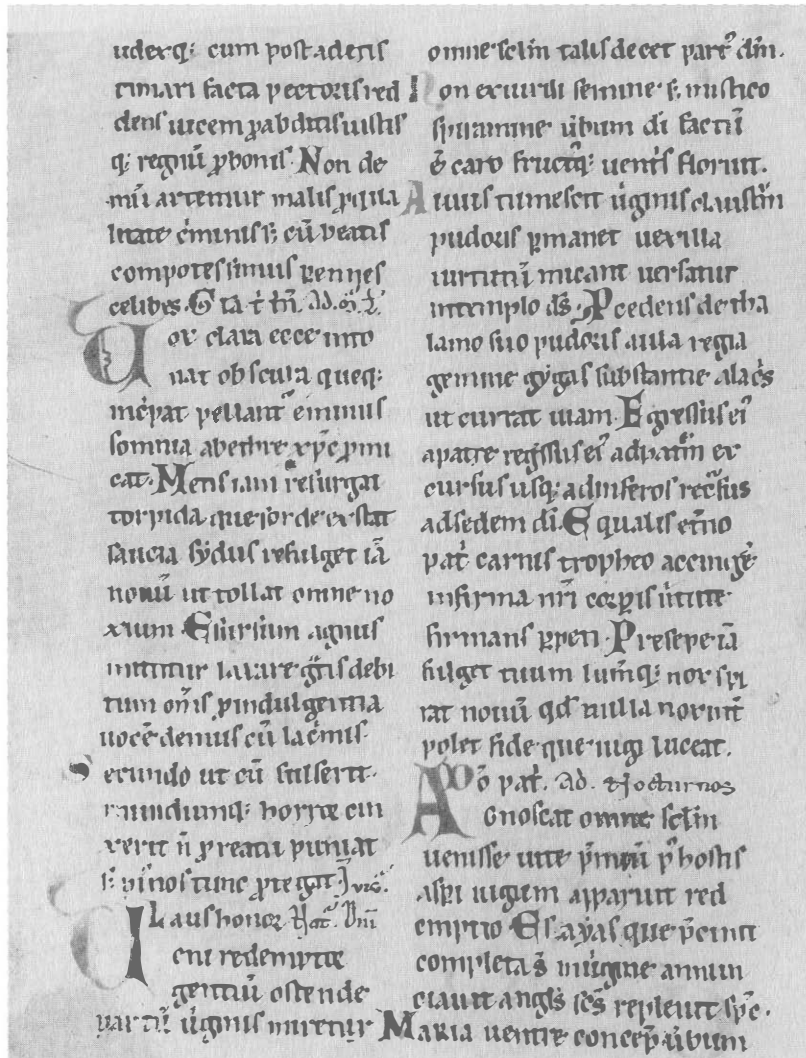 udexq; cum post aderis
rimari facta pectoris red
dens uicem pabditis iustis
q; regnũ pbonis. Non de
mũ artemur malis pqua
litate c̃minis s; cũ beatis
compotes simus pennes
celibes. G ła t̃ tñ. ad.
Uox clara ecce into
nat obscura queq;
inc̃pat pellant᷑ eminus
somnia abethre xp̃c pmi
cat. Mens iam resurgat
torpida que sorde exstat
saucia sydus refulget iã
nouũ ut tollat omne no
xium. Esursum agnus
mittitur lauare gr̃tis debi
tum om̃s pindulgentia
uocẽ demus cũ lac̃mis.
Secundo ut cũ fulserit
mundumq; horror cin
xerit ñ preatu puniat
s; pi᷒ nos tunc ptegat.
Laus honor. Nat. Dñi
Ueni redemptor
gentiũ ostende
partũ ũginis miretur
omne sclm̃ talis decet part᷒ dñm.
Non exuirili semine s; mistico
spiramine ũbum di factũ
ẽ caro fructq; uent̃s floruit.
Aluus tumescit ũginis claustr̃m
pudoris pmanet uexilla
uirtutũ micant uersatur
intemplo ds̃. Pcedens de tha
lamo suo pudoris aula regia
gemine gygas substantie alac̃s
ut currat uiam. Egressus ei᷒
apatre reg̃ssus ei᷒ adpatr̃m ex
cursus usq; adinferos rec̃sus
adsedem di. Equalis et̃no
pat̃ carnis tropheo accinge
infirma nr̃i corpis ũtute
firmans ppeti. Presepe iã
fulget tuum lum̃q; nox spi
rat nouũ qd nulla nox int̃
polet fide que iugi luceat.
Do pat̃. ad. Nocturnos
Agnoscat omne sclm̃
uenisse uite p̃miũ p᷒ hostis
aspi iugum apparuit red
emptio Esayas que p̃cinit
completa s̃ inũgine annun
ciauit angls̃ sc̃s repleuit spc̃.
Maria uentre concep̃ ũbum